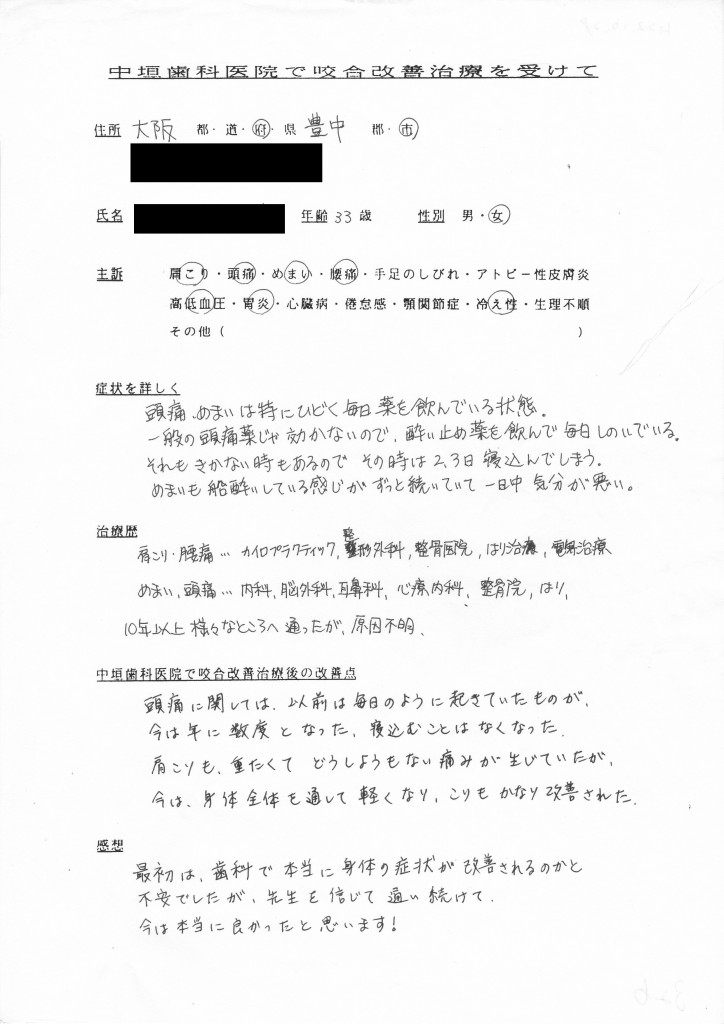 中垣歯科医院で咬合改善治療を受けて
住所 大阪 都・道・府・県 豊中 郡・市
氏名 年齢 33 歳 性別 男・女
主訴 肩こり・頭痛・めまい・腰痛・手足のしびれ・アトピー性皮膚炎
高低血圧・胃炎・心臓病・倦怠感・顎関節症・冷え性・生理不順
その他( )
症状を詳しく
頭痛、めまいは特にひどく毎日薬を飲んでいる状態。
一般の頭痛薬じゃ効かないので、酔い止め薬を飲んで毎日しのいでいる。
それもきかない時もあるので その時は2、3日寝込んでしまう。
めまいも船酔いしている感じがずっと続いていて一日中気分が悪い。
治療歴
肩こり・腰痛… カイロプラクティック, 整形外科, 整骨医院, はり治療, 電気治療
めまい, 頭痛… 内科, 脳外科, 耳鼻科, 心療内科, 整骨院, はり,
10年以上 様々なところへ通ったが、原因不明、
中垣歯科医院で咬合改善治療後の改善点
頭痛に関しては、以前は毎日のように起きていたものが、
今は年に数度となった、寝込むことはなくなった。
肩こりも、重たくて どうしようもない痛みが生じていたが、
今は、身体全体を通して軽くなり、こりもかなり改善された。
感想
最初は、歯科で本当に身体の症状が改善されるのかと
不安でしたが、先生を信じて通い続けて、
今は本当に良かったと思います!